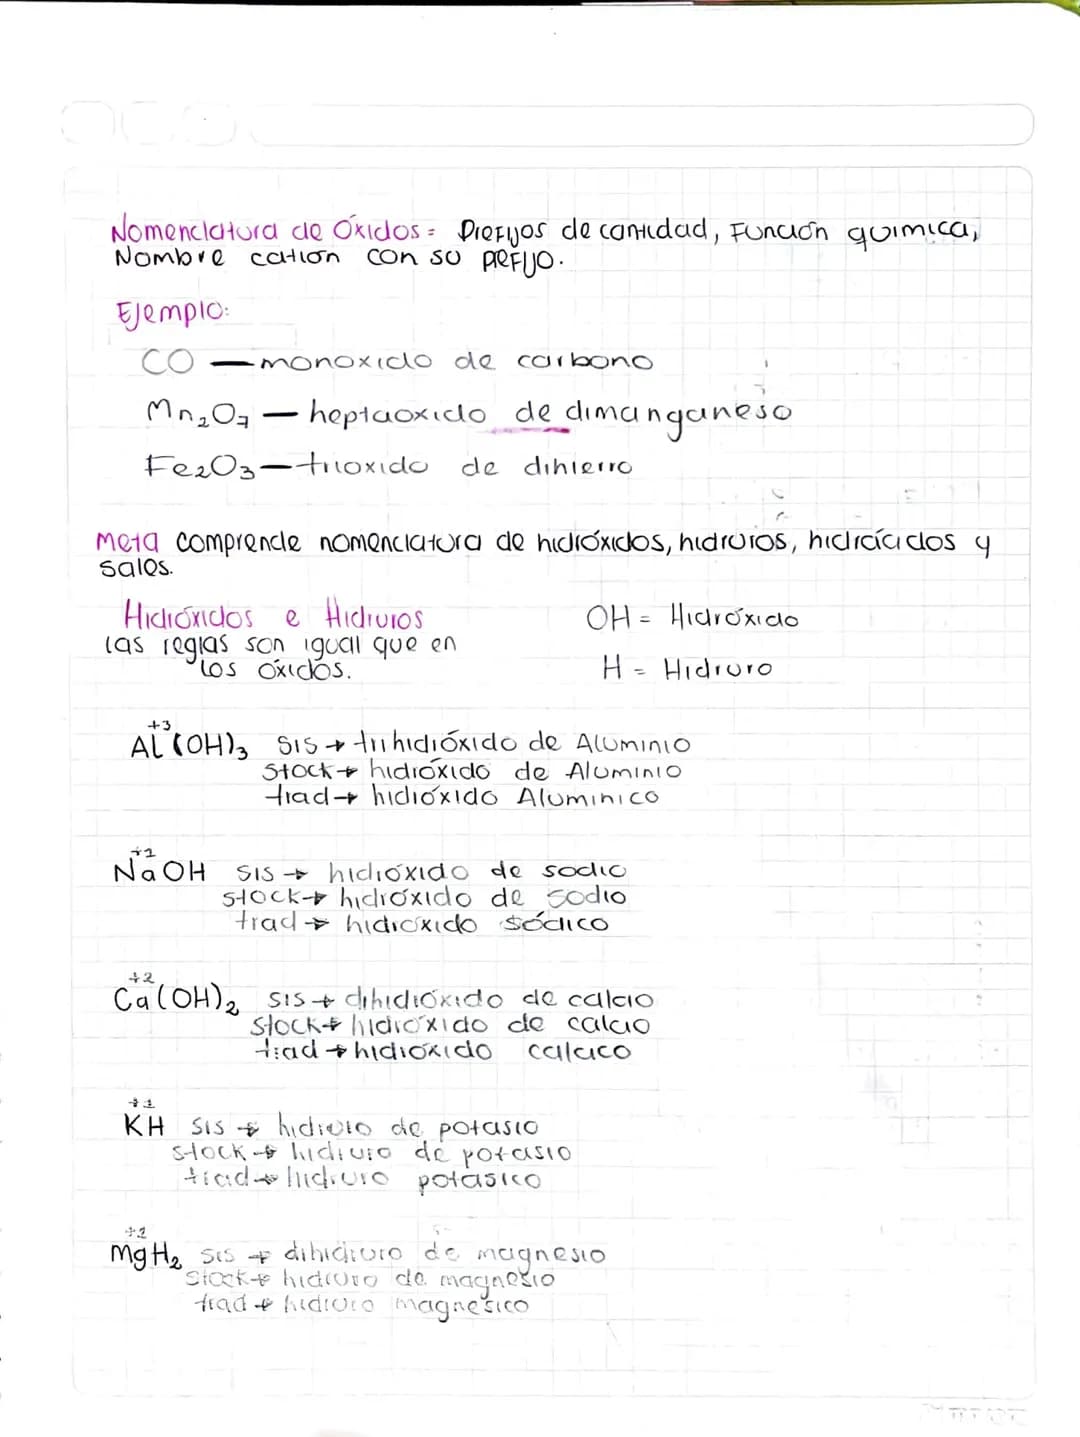 Nomenclatura de Óxidos = Prefijos de cantidad, Función química,
Nombre cation con su prefijo.
Ejemplo:
CO — monoxido de carbono
Mn₂O₇ — heptaoxido de dimanganeso
Fe₂O₃ — trioxido de dihierro
Meta comprende nomenclatura de hidróxidos, hidruros, hidrácidos y
sales.
Hidróxidos e Hidruros
las reglas son igual que en
los óxidos.
OH = Hidróxido
H = Hidruro
+3
Al(OH)₃ sis → trihidróxido de Aluminio
stock → hidróxido de Aluminio
trad → hidróxido Aluminico
+1
NaOH sis → hidróxido de sodio
stock → hidróxido de sodio
trad → hidróxido sódico
+2
Ca(OH)₂ sis → dihidróxido de calcio
stock → hidróxido de calcio
trad → hidróxido calcico
+1
KH sis → hidruro de potasio
stock → hidruro de potasio
trad → hidruro potasico
+2
MgH₂ sis → dihidruro de magnesio
stock → hidruro de magnesio
trad → hidruro magnésico